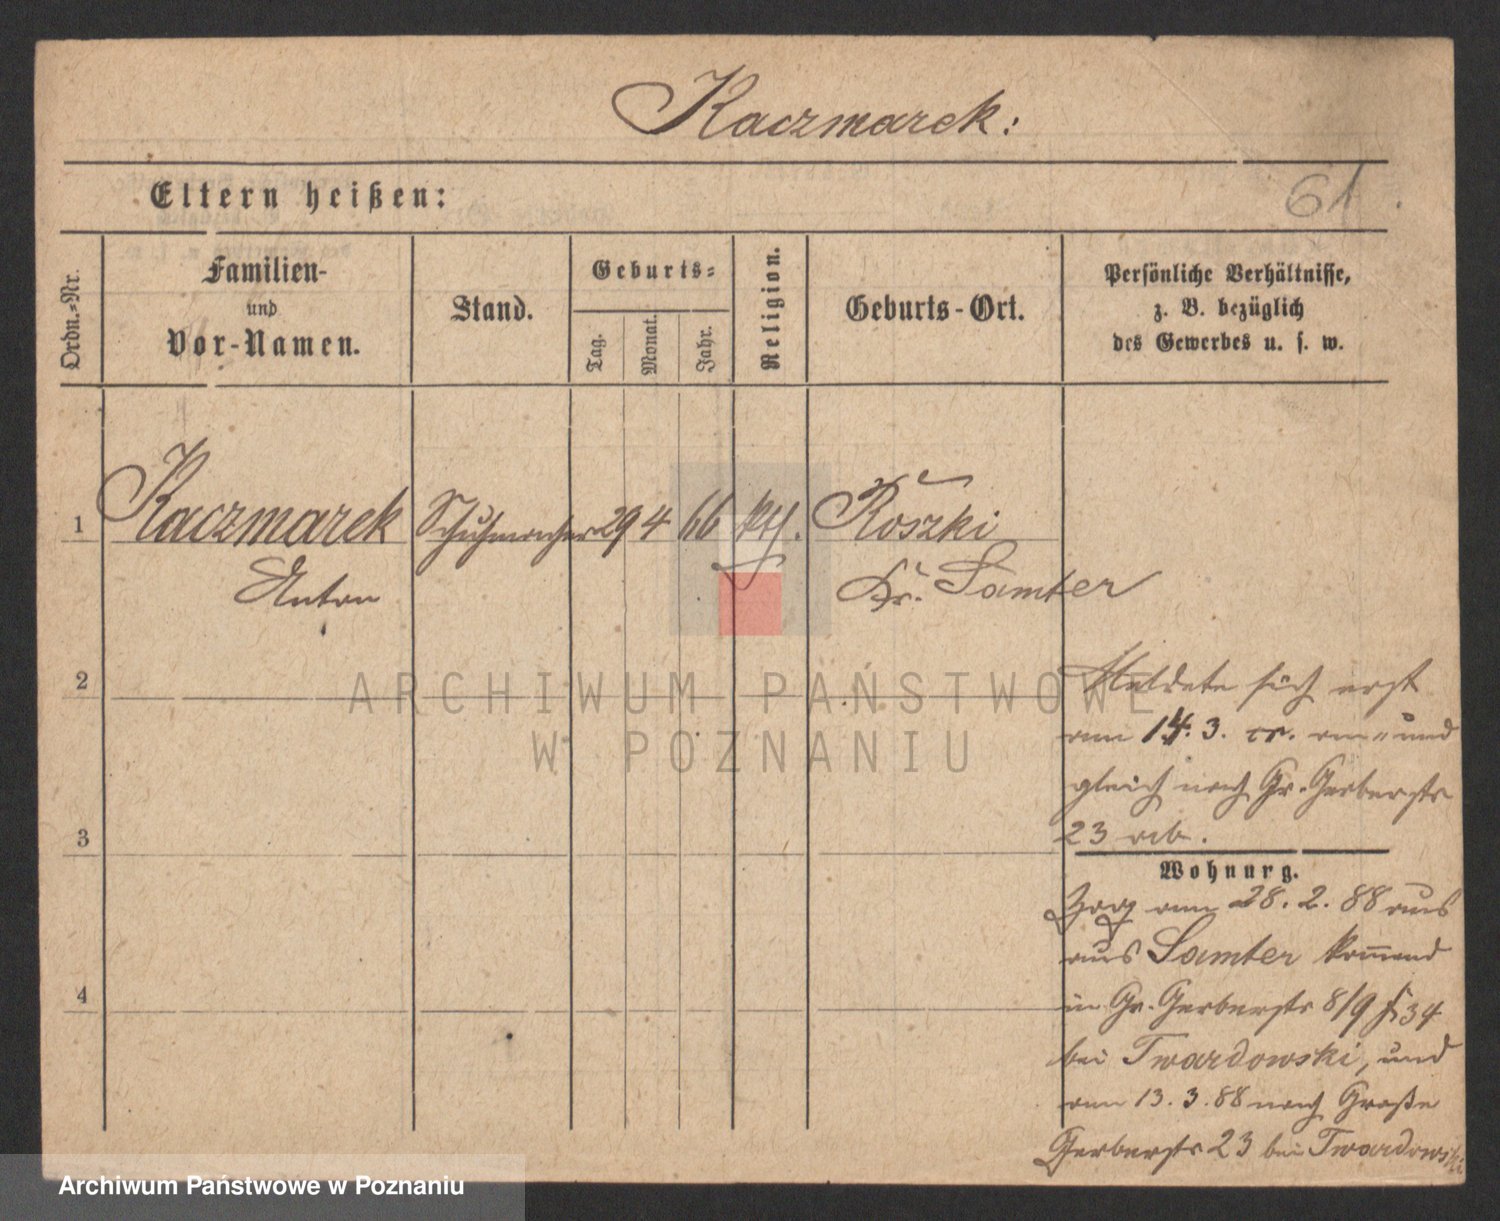 Kaczmarek:
Eltern heißen:
61.
Ordn.-Nr.
Familien-
und
Vor-Namen.
Stand.
Geburts-
Tag.
Monat.
Jahr.
Religion.
Geburts-Ort.
Persönliche Verhältnisse,
z. B. bezüglich
des Gewerbes u. s. w.
1 Kaczmarek Schuhmacher 29 4 66 kth. Roszki
Anton Kr. Samter
2
3
4
Meldete sich erst
am 14. 3. cr. an und
gleich nach Gr. Gerberstr
23 ab.
Wohnung.
Zog am 28. 2. 88 aus
aus Samter kommend
in Gr. Gerberstr 8/9
bei Twardowski, und
am 13. 3. 88 nach Große
Gerberstr 23 bei Twardowski
ARCHIWUM PAŃSTWOWE
W POZNANIU
Archiwum Państwowe w Poznaniu